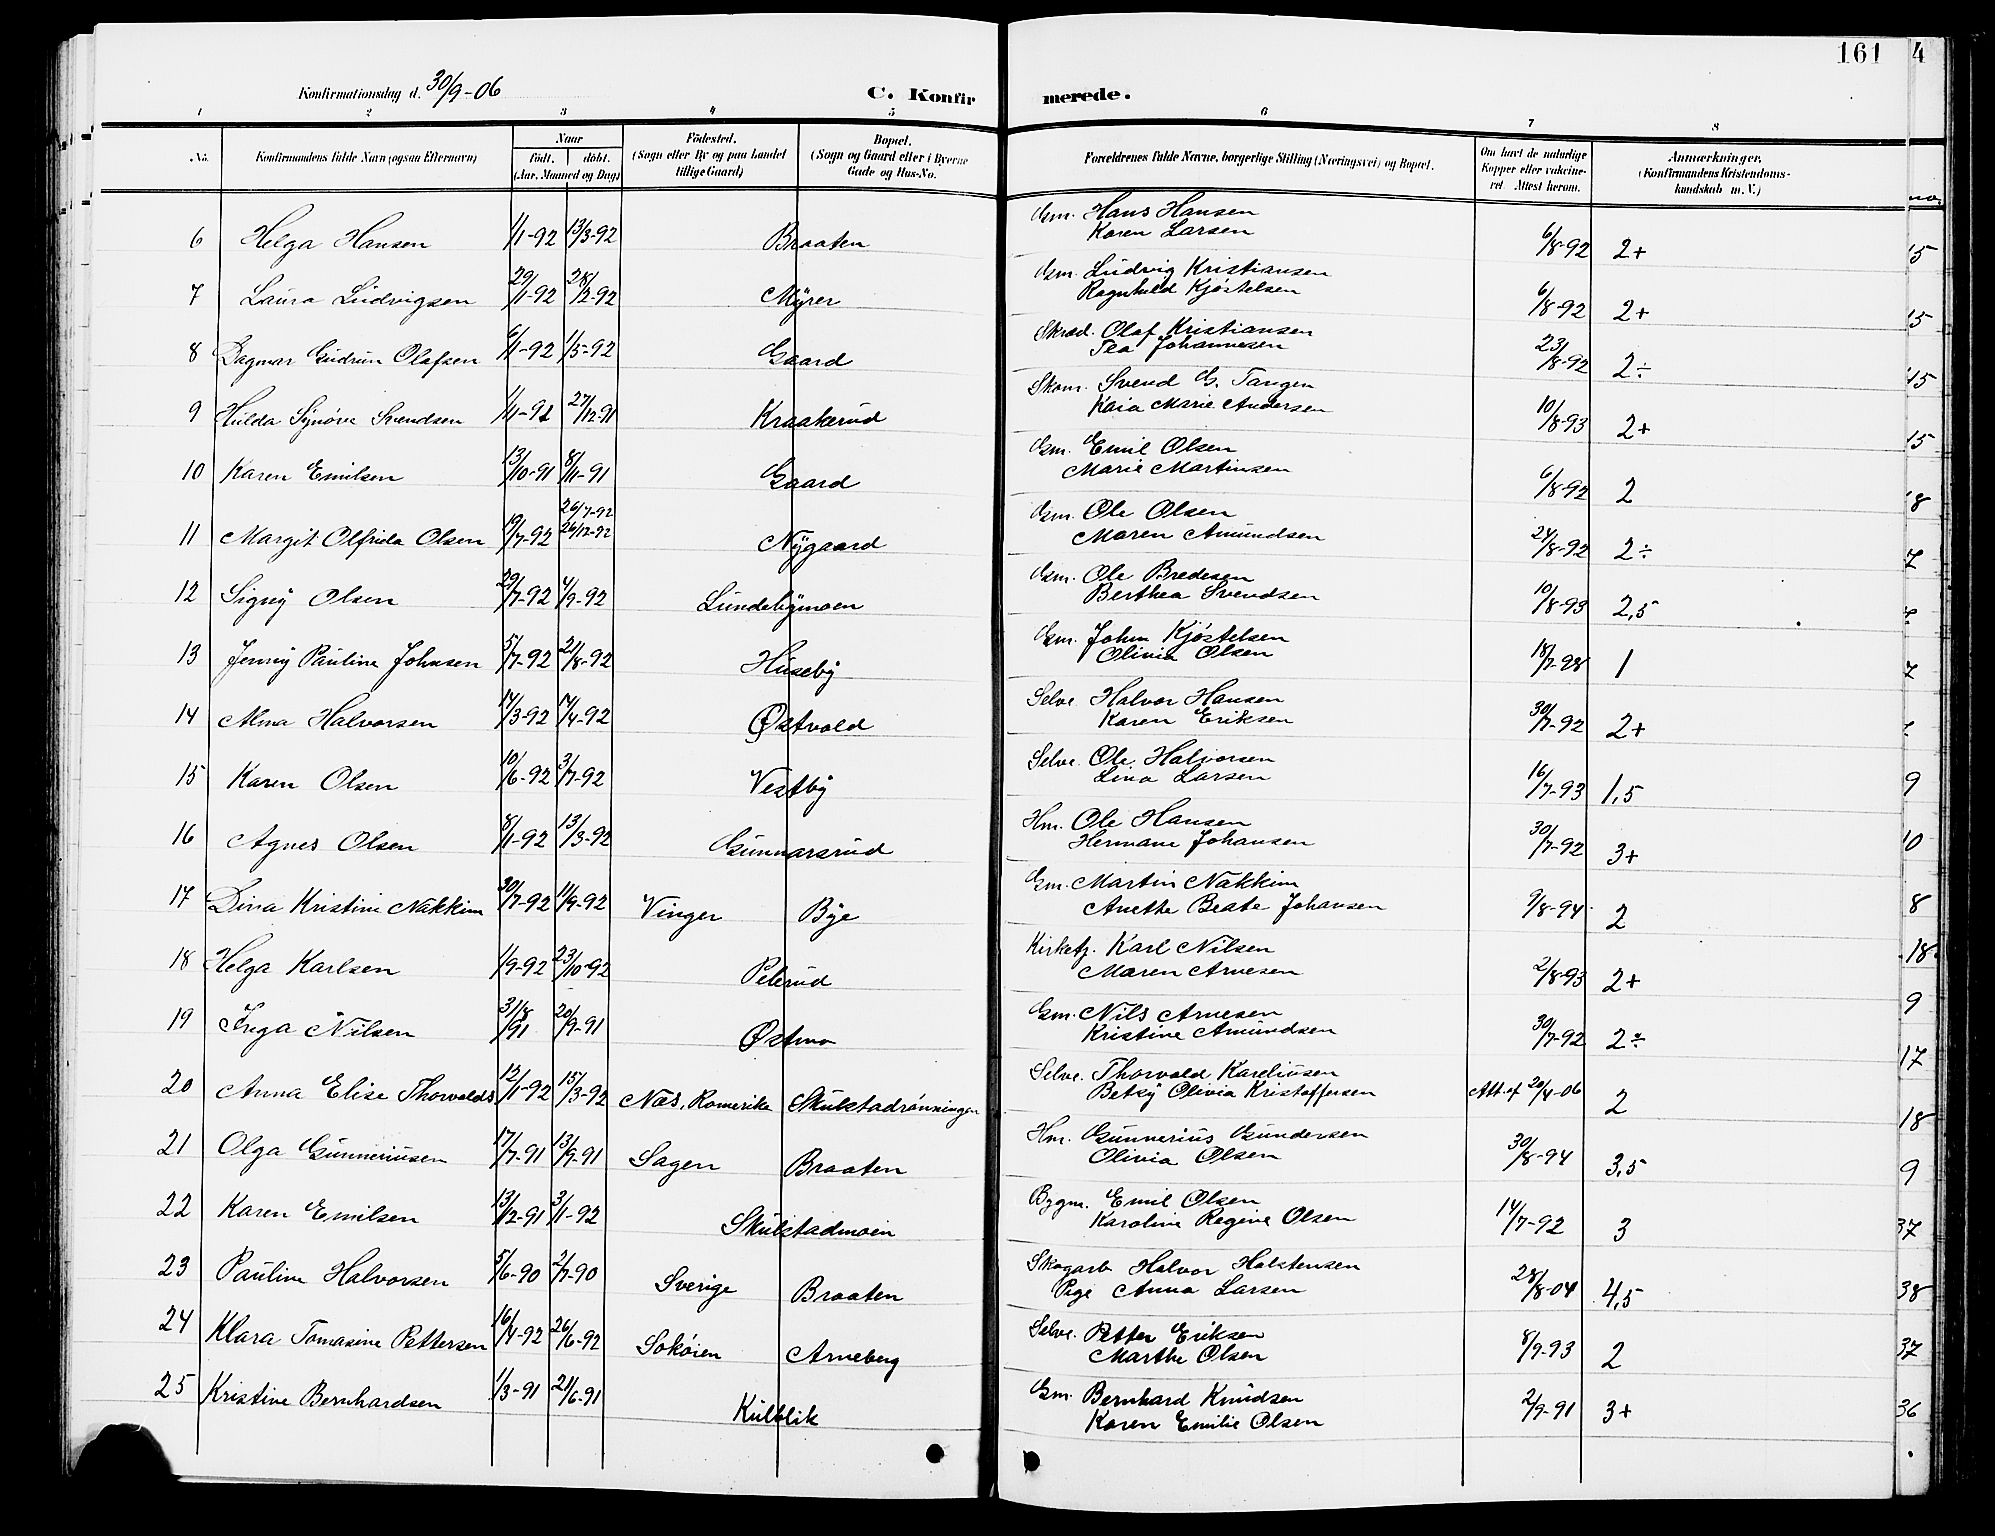 161 4
Konfirmationsdag d. 30/9-06
C. Konfirmerede.
1 2 3 4 5 6 7 8
No. Konfirmandens fulde Navn (ogsaa Efternavn) Naar født. døbt. (Aar, Maaned og Dag) Fødested. (Sogn eller By og paa Landet tillige Gaard) Bopæl. (Sogn og Gaard eller i Byerne Gade og Hus-No. Forældrenes fulde Navne, borgerlige Stilling (Næringsvei) og Bopæl. Om havt de naturlige Kopper eller vakcineret Attest herom. Anmærkninger. (Konfirmandens Kristendomskundskab m. V.)
6 Helga Hansen 1/1-92 13/3-92 Braaten Gm. Hans Hansen
Karen Larsen 6/8-92 2+ 15
7 Laura Ludvigsen 29/1-92 28/2-92 Myrer Gm. Ludvig Kristiansen
Ragnhild Kjøstelsen 6/8-92 2+ 15
8 Dagmar Gudrun Olafsen 6/1-92 1/5-92 Gaard Skræd. Olaf Kristiansen
Tea Johannesen 23/8-92 2÷ 15
9 Hulda Synøve Svendsen 27/12-91 Kraakerud Skom. Svend G. Tangen
Kaia Marie Andersen 10/8-93 2+ 15
10 Karen Emilsen 13/10-91 8/11-91 Gaard Gm. Emil Olsen
Marie Martinsen 6/8-92 2 18
11 Margit Olfrida Olsen 19/7-92 26/7-92
26/12-92 Nygaard Gm. Ole Olsen
Maren Amundsen 24/8-92 2÷ 7
12 Signy Olsen 29/7-92 4/9-92 Lundebymoen Gm. Ole Bredesen
Berthea Svendsen 10/8-93 2,5
13 Jenny Pauline Johnsen 5/7-92 21/8-92 Huseby Gm. John Kjøstelsen
Olivia Olsen 18/7-98 1 7
14 Alma Halvorsen 14/3-92 17/4-92 Østvold Selve. Halvor Hansen
Karen Eriksen 30/7-92 2+
15 Karen Olsen 10/6-92 3/7-92 Vestby Selve. Ole Halvorsen
Lina Larsen 16/7-93 1,5 9
16 Agnes Olsen 8/1-92 13/3-92 Gunnarsrud Hm. Ole Hansen
Hermane Johansen 30/7-92 3+ 10
17 Dina Kristine Nakkim 30/7-92 11/9-92 Vinger Bye Gm. Martin Nakkim
Anethe Beate Johansen 9/8-94 2 8
18 Helga Karlsen 1/9-92 23/10-92 Pelerud Kirketj. Karl Nilsen
Maren Arnesen 2/8-93 2+ 18
19 Inga Nilsen 31/8/91 20/9-91 Østmo Gm. Nils Arnesen
Kristine Amundsen 30/7-92 2÷ 9
20 Anna Elise Thorvalds 12/1-92 13/3-92 Næs, Romerike Skulstadrønningen Selve. Thorvald Kareliusen
Betsy Olivia Kristoffersen Att. af 20/4-06 2 17
21 Olga Gunneriusen 17/7-91 13/9-91 Sagen Braaten Hm. Gunnerius Gundersen
Olivia Olsen 30/8-94 3,5 18
22 Karen Emilsen 13/12-91 3/1-92 Skulstadmoen Bygm. Emil Olsen
Karoline Regine Olsen 14/7-92 3 9
23 Pauline Halvorsen 5/6-90 2/7-90 Sverige Braaten Skogarb Halvor Halstensen
Pige Anna Larsen 28/8-04 4,5 37
24 Klara Tomasine Pettersen 16/4-92 26/6-92 Sokøien Arneberg Selve. Petter Eriksen
Marthe Olsen 8/9-93 2 38
25 Kristine Bernhardsen 1/3-91 21/6-91 Kulblik Gm. Bernhard Knudsen
Karen Emilie Olsen 2/9-91 3+ 37
36